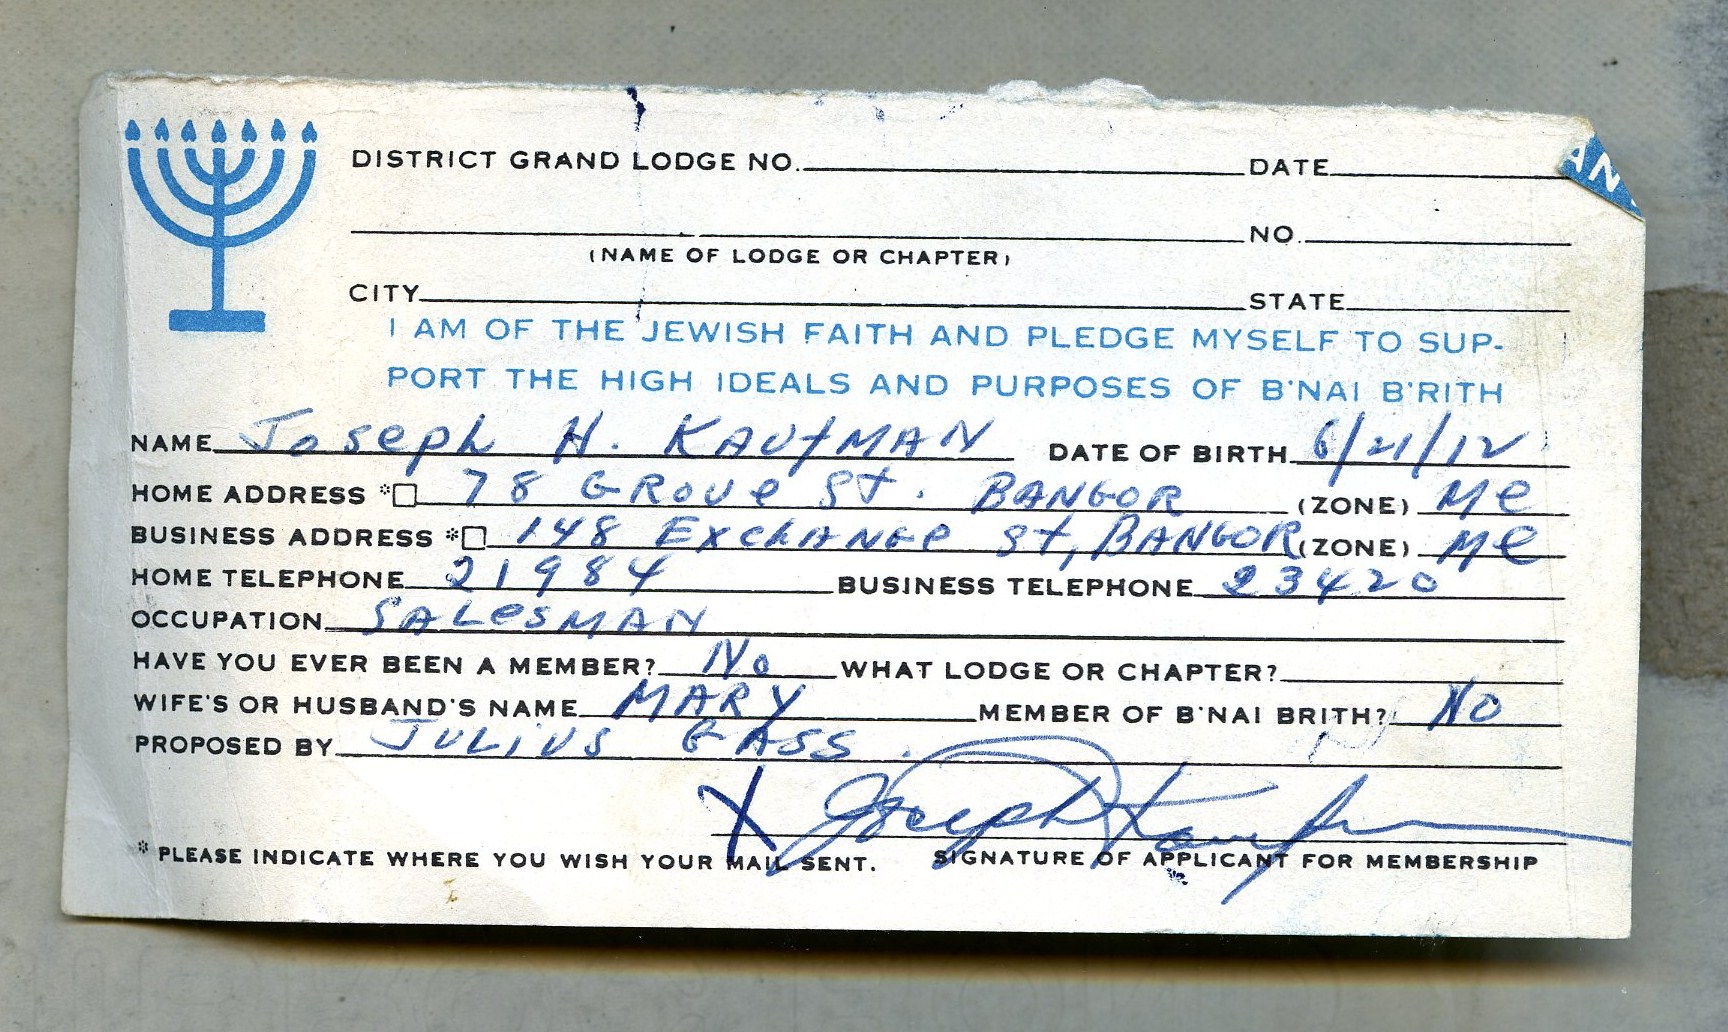 DISTRICT GRAND LODGE NO. DATE
AN
NO.
(NAME OF LODGE OR CHAPTER)
CITY STATE
I AM OF THE JEWISH FAITH AND PLEDGE MYSELF TO SUP-
PORT THE HIGH IDEALS AND PURPOSES OF B'NAI B'RITH
NAME Joseph H. KAUfMAN DATE OF BIRTH 6/21/12
HOME ADDRESS *☐ 78 GROVE St. BANGOR (ZONE) Me
BUSINESS ADDRESS *☐ 148 ExchANGe St, BANGOR (ZONE) Me
HOME TELEPHONE 21984 BUSINESS TELEPHONE 23420
OCCUPATION SALeSMAN
HAVE YOU EVER BEEN A MEMBER? No WHAT LODGE OR CHAPTER?
WIFE'S OR HUSBAND'S NAME MARY MEMBER OF B'NAI BRITH? NO
PROPOSED BY JULiUS GASS.
X Joseph Kaufman
* PLEASE INDICATE WHERE YOU WISH YOUR MAIL SENT. SIGNATURE OF APPLICANT FOR MEMBERSHIP